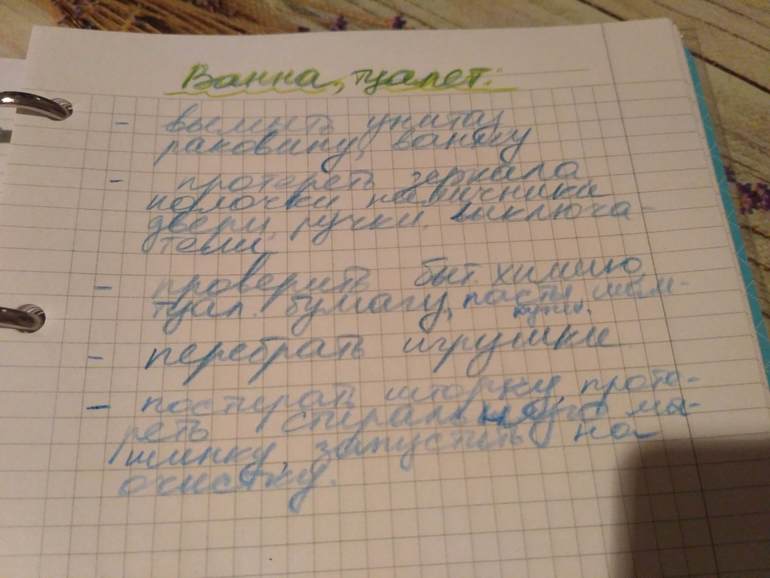 Ванна, туалет:
- вымыть унитаз,
раковину, ванну
- протереть зеркала
полочки наличники
двери, ручки. выключа-
тели.
- проверить быт. химию,
туал. бумагу, пасты шам-
пуни.
- перебрать игрушки.
- постирать шторку, проте-
реть стиральную ма-
шинку, запустить на
очистку.